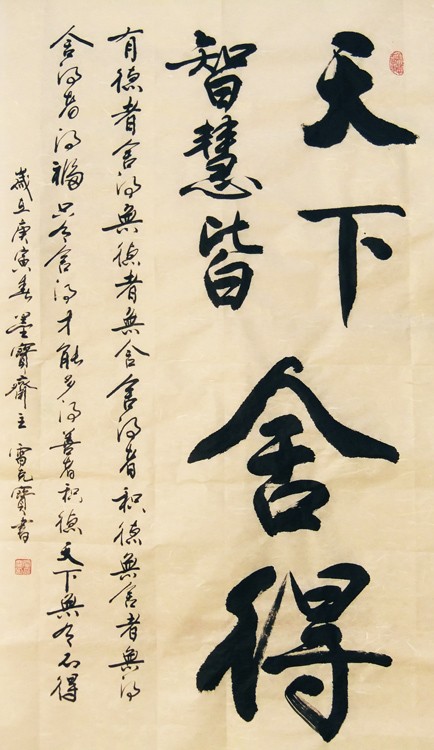 天下舍得
智慧皆
有德者舍得無德者無舍舍得者積德無舍者無得
舍得者得福只有舍得才能多得善者積德天下無有不得
歲在庚寅春墨寶齋主雷元寶書